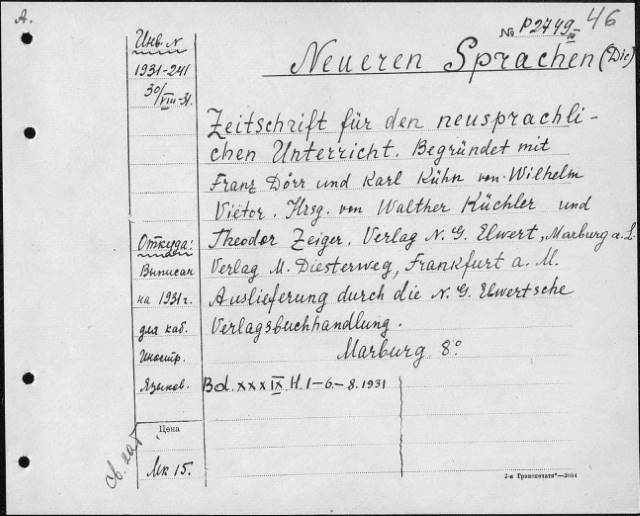 A.
№ P2749 IV 46
Neueren Sprachen (Die)
Инв. N
1931-241
30/VIII-31.
Zeitschrift für den neusprachli-
chen Unterricht. Begründet mit
Franz Dörr und Karl Kühn von Wilhelm
Viëtor. Hrsg. von Walther Küchler und
Theodor Zeiger. Verlag N. G. Elwert, Marburg a. L.
Verlag M. Diesterweg, Frankfurt a. M.
Auslieferung durch die N. G. Elwertsche
Verlagsbuchhandlung.
Marburg 8°
Откуда:
Выписан
на 1931 г.
для каб.
Иностр.
Языков.
Bd. XXXIX. H. 1-6.-8. 1931
Цена
Мк 15.